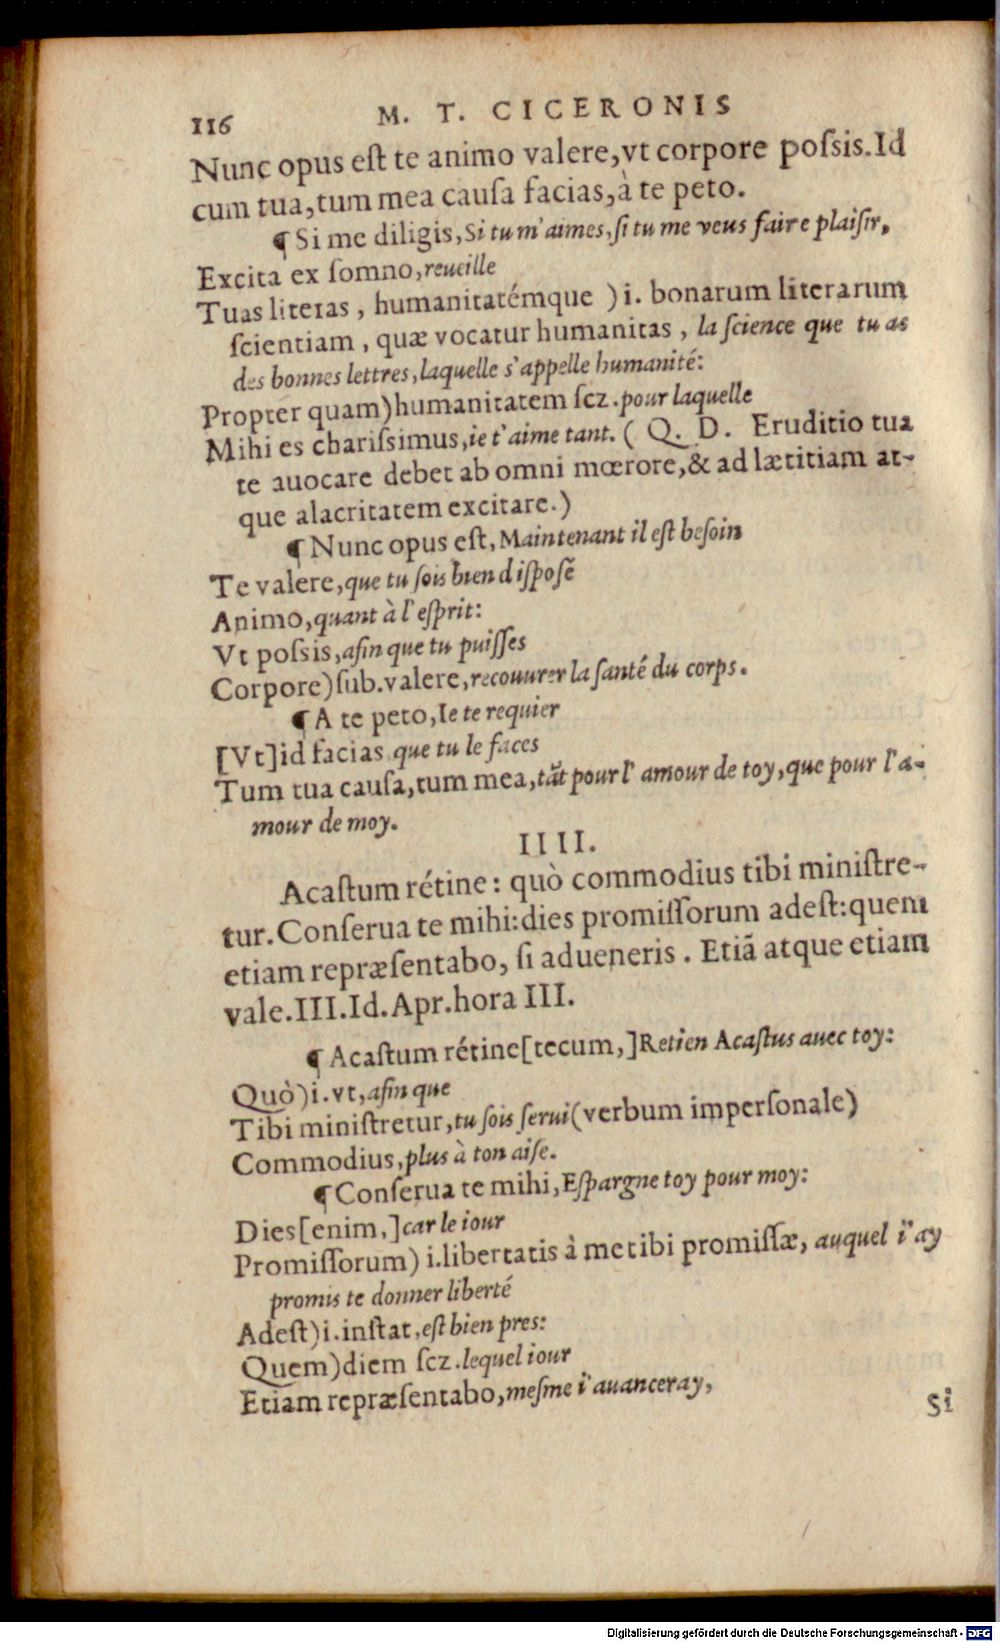 116 M. T. CICERONIS
Nunc opus eſt te animo valere,vt corpore poſsis.Id
cum tua,tum mea cauſa facias,à te peto.
¶ Si me diligis,Si tu m'aimes,ſi tu me veus faire plaiſir,
Excita ex ſomno,reueille
Tuas literas , humanitatémque ) i. bonarum literarum
ſcientiam , quæ vocatur humanitas , la ſcience que tu as
des bonnes lettres,laquelle s'appelle humanité:
Propter quam)humanitatem ſcz.pour laquelle
Mihi es chariſsimus,ie t'aime tant. ( Q. D. Eruditio tua
te auocare debet ab omni mœrore,& ad lætitiam at-
que alacritatem excitare.)
¶ Nunc opus eſt,Maintenant il eſt beſoin
Te valere,que tu ſois bien diſpoſé
Animo,quant à l'eſprit:
Vt poſsis,afin que tu puiſſes
Corpore)ſub.valere,recouurer la ſanté du corps.
¶ A te peto,Ie te requier
[Vt]id facias que tu le faces
Tum tua cauſa,tum mea,tāt pour l' amour de toy,que pour l'a-
mour de moy.
IIII.
Acaſtum rétine: quò commodius tibi miniſtre-
tur.Conſerua te mihi:dies promiſſorum adeſt:quem
etiam repræſentabo, ſi adueneris . Etiā atque etiam
vale.III.Id.Apr.hora III.
¶ Acaſtum rétine[tecum,]Retien Acaſtus auec toy:
Quò)i.vt,afin que
Tibi miniſtretur,tu ſois ſerui(verbum imperſonale)
Commodius,plus à ton aiſe.
¶ Conſerua te mihi,Eſpargne toy pour moy:
Dies[enim,]car le iour
Promiſſorum) i.libertatis à me tibi promiſſæ, auquel i'ay
promis te donner liberté
Adeſt)i.inſtat,eſt bien pres:
Quem)diem ſcz.lequel iour
Etiam repræſentabo,meſme i'auanceray,
Si
Digitalisierung gefördert durch die Deutsche Forschungsgemeinschaft - DFG